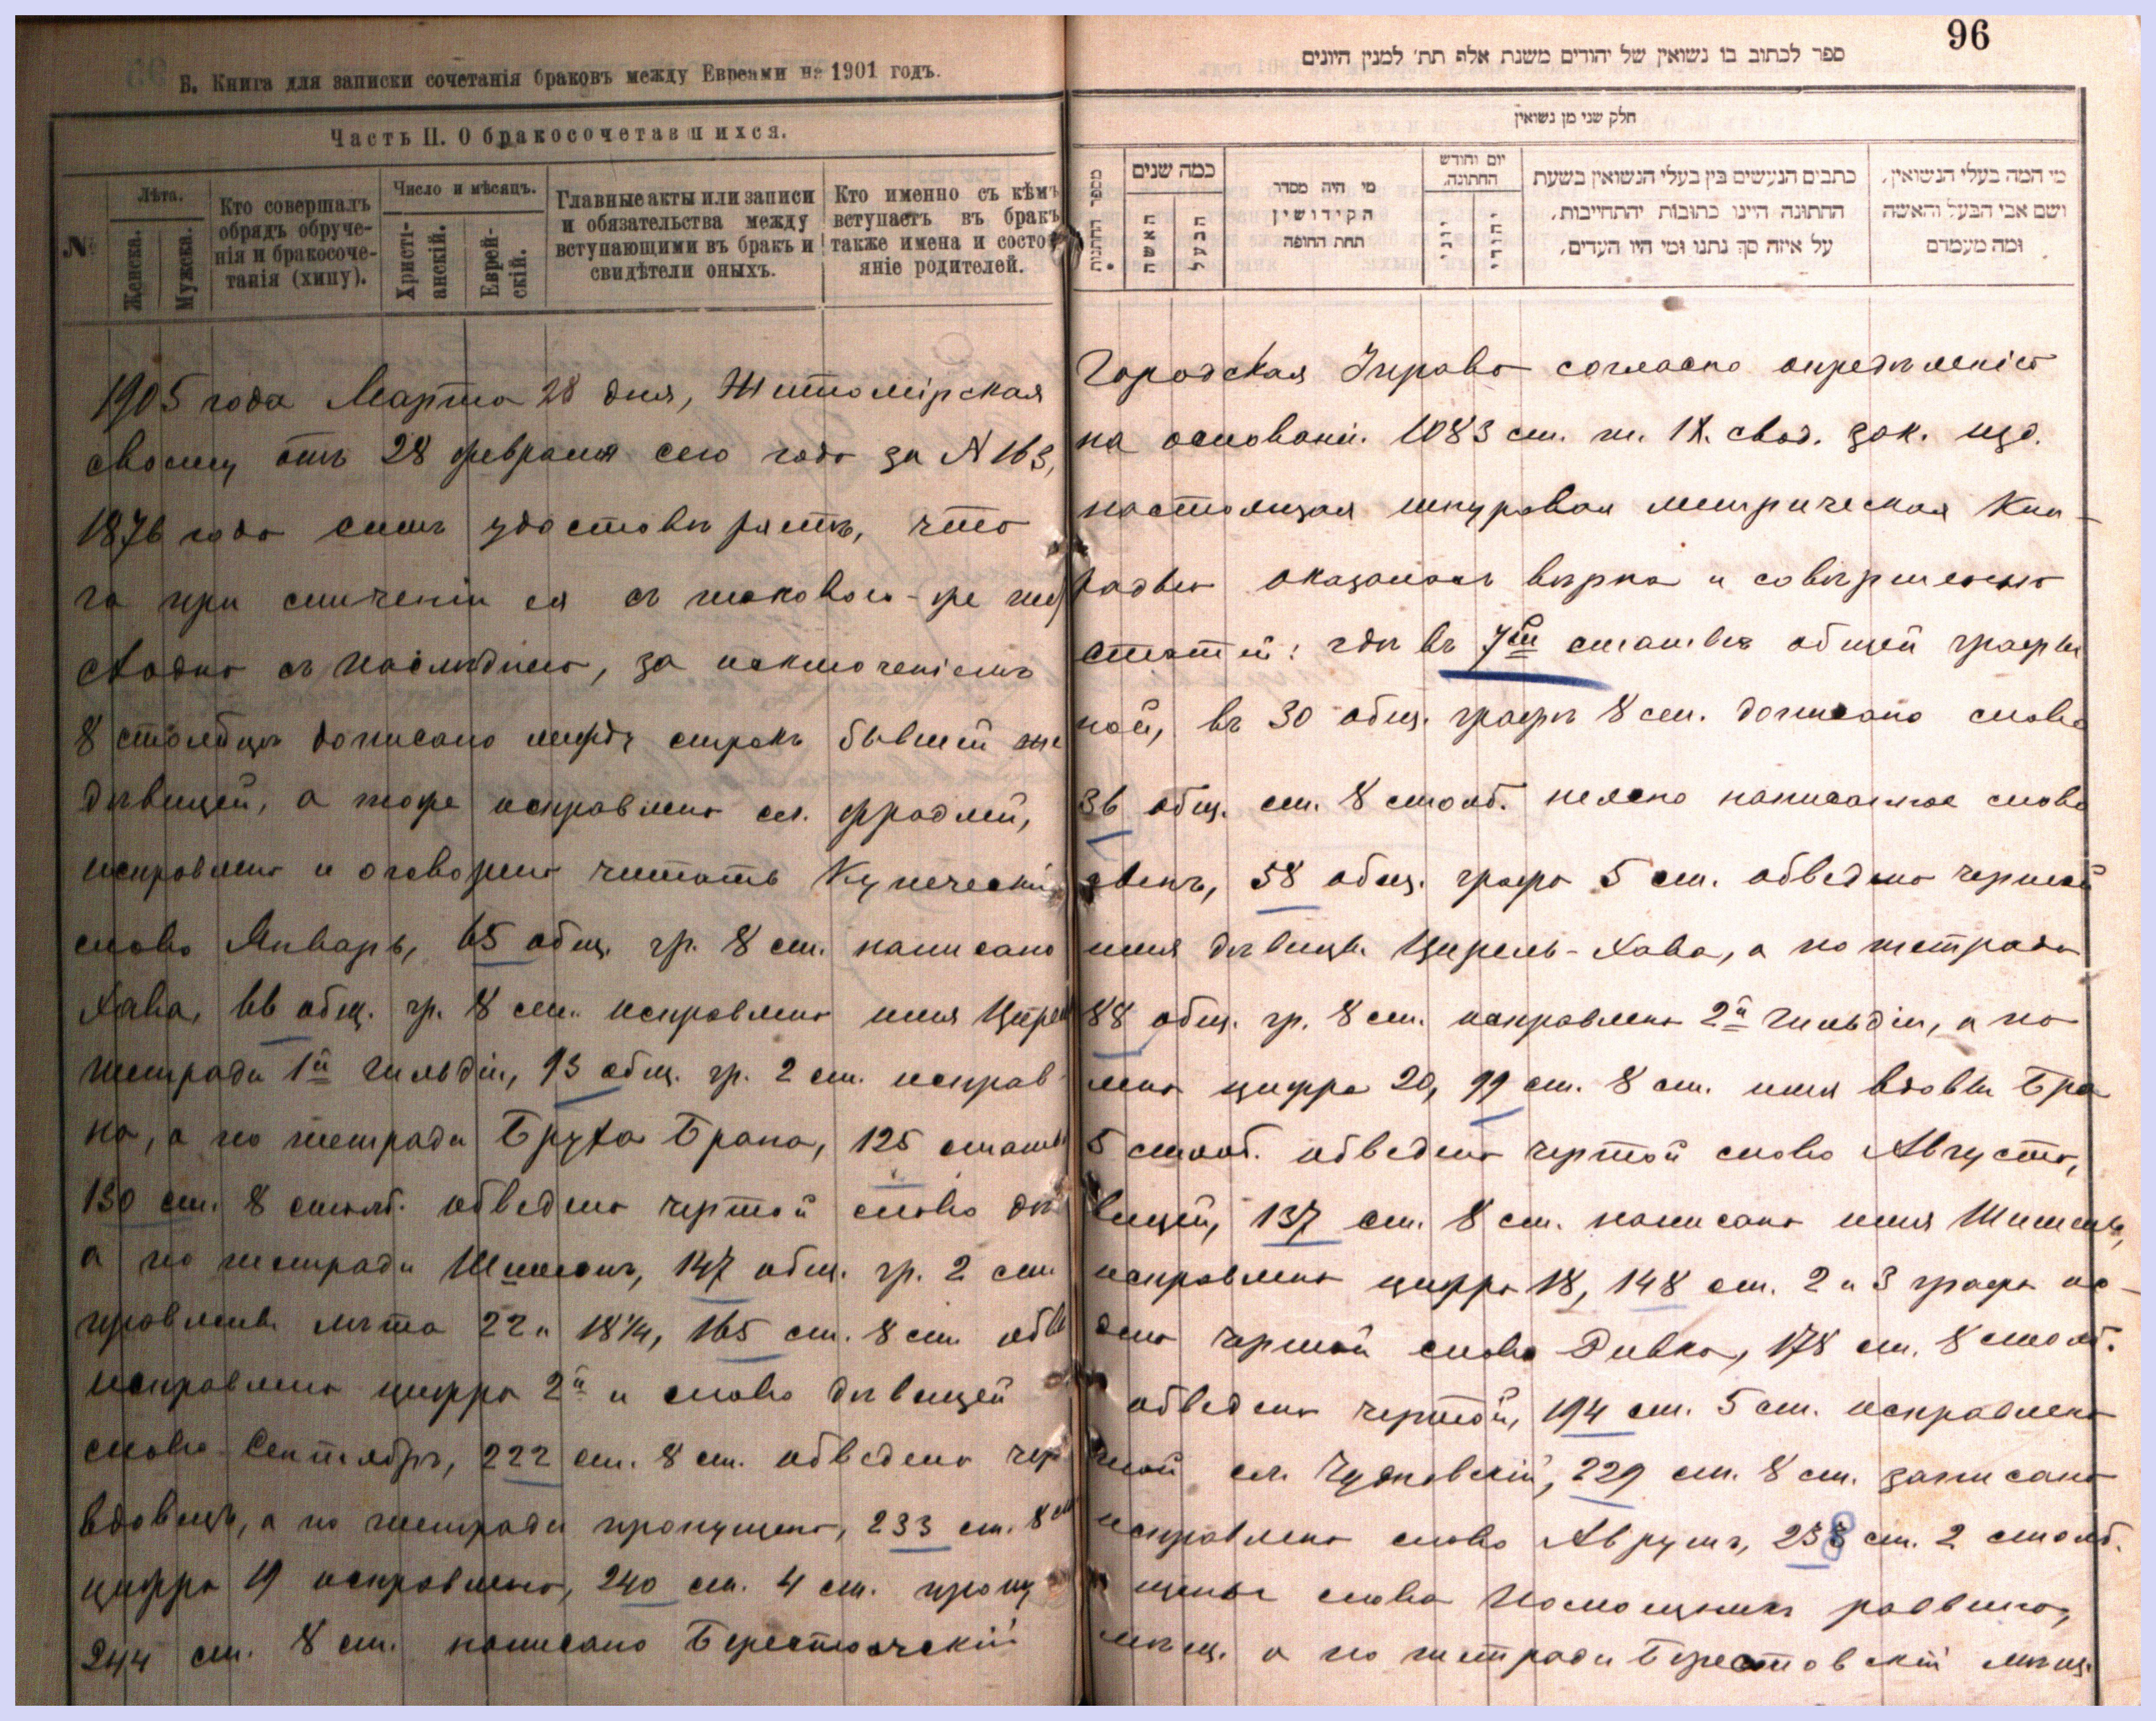 96
Б. Книга для записки сочетанія браковъ между Евреями на 1901 годъ.
ספר לכתוב בו נשואין של יהודים משנת אלף תת׳ למנין היונים
Часть II. О бракосочетавшихся.
חלק שני מן נשואין
№
Лѣта.
Женска.
Мужска.
Кто совершалъ
обрядъ обруче-
нія и бракосоче-
танія (хипу).
Число и мѣсяцъ.
Христі-
анскій.
Еврей-
скій.
Главные акты или записи
и обязательства между
вступающими въ бракъ и
свидѣтели оныхъ.
Кто именно съ кѣмъ
вступаетъ въ бракъ
также имена и состо-
яніе родителей.
מספר החתונות
כמה שנים
האשה
הבעל
מי היה מסדר
הקידושין
תחת החופה
יום וחודש
החתונה.
יוני
יהודי
כתבים הנעשים בין בעלי הנשואין בשעת
החתונה היינו כתובות והתחייבות,
על איזה סך נתנו ומי היו העדים,
מי המה בעלי הנשואין,
ושם אבי הבעל והאשה
ומה מעמדם
1905 года Марта 28 дня, Житомірская Городская Управа согласно опредѣленію
своему отъ 28 февраля сего года за № 163, на основаніи 1083 ст. т. IX. свод. зак. изд.
1876 года симъ удостовѣряетъ, что настоящая шнуровая метрическая Кни-
га при сличеніи ея съ таковою-же тетрадью оказалась вѣрна и совершенно
сходна съ послѣднею, за исключеніемъ статей: гдѣ въ 7й статьѣ общей графы
8 столбцѣ дописано между строкъ бывшей женой, въ 30 общ. графѣ 8 ст. дописано слово
дѣвицей, а тоже исправлено сл. Фрадлей, 36 общ. ст. 8 столб. неясно написанное слово
исправлено и оговорено читать Купеческій 58 общ. графа 5 ст. обведено чертой
слово Январь, 65 общ. гр. 8 ст. написано имя дѣвицы Цирель-Хава, а по тетради
Хава, 66 общ. гр. 8 ст. исправлено имя 88 общ. гр. 8 ст. исправлено 2й гильдіи, а по
тетради 1й гильдіи, 93 общ. гр. 2 ст. исправлена цифра 20, 99 ст. 8 ст. имя вдовы Бра
на, а по тетради Бруха Брана, 125 статьи 5 столб. обведено чертой слово Августа,
130 ст. 8 столб. обведено чертой слово дѣвицей, 137 ст. 8 ст. написано имя
а по тетради Шимонъ, 147 общ. гр. 2 ст. исправлена цифра 18, 148 ст. 2 и 3 графа ис-
правлены лѣта 22 и 18¼, 165 ст. 8 ст. обведено чертой слово Ривка, 178 ст. 8 столб.
исправлена цифра 2й и слово дѣвицей обведено чертой, 194 ст. 5 ст. исправлено
слово Сентябрь, 222 ст. 8 ст. обведено чертой сл. Чудновскій, 229 ст. 8 ст. записано
вдовецъ, а по тетради пропущено, 233 ст. 8 ст. исправлено слово Аврумъ, 238 ст. 2 столб.
цифра 19 исправлена, 240 ст. 4 ст. пропущены слова Помощникъ раввина,
244 ст. 8 ст. написано Берестечскій мѣщ. а по тетради Берестовскій мѣщ.